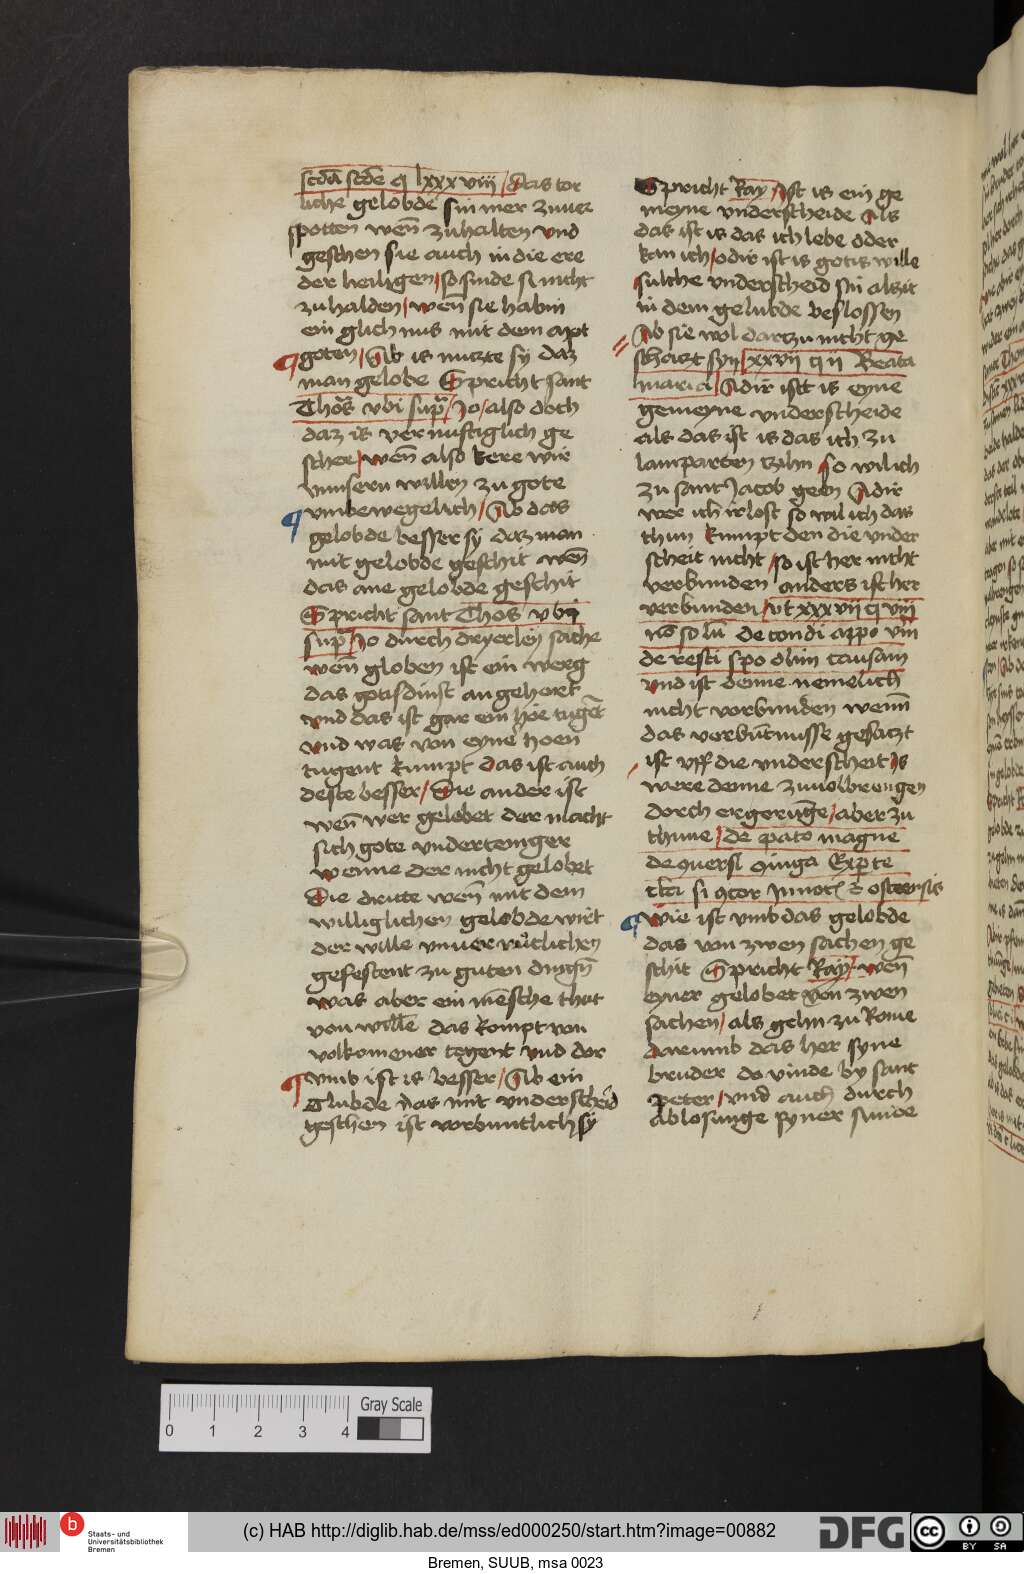 scda scde q lxxxviii / das tor
liche gelobde sin mer zuuer
spotten wen̄ zuhalten vnd
geschen sie auch in die ere
der heiligen / so sinde si nicht
zuhalden / wen̄ sie habin
ein glich nus mit dem apt
goten / Ab is nutzte sy daz
man gelobe Spricht sant
Thōs vbi supͣ / Jo / also doch
daz is vernuftiglich ge
schee / wen̄ also kere wir
vnnsern willen zu gote
vmbewegelich / Ab das
gelobde besser sy daz man
mit gelobde geschit wen̄
das ane gelobde geschit
Spricht sant Thōs vbi
supͣ / Jo durch dryerley sache
wen̄ globen ist ein werg
das gotisdinst angehoret
vnd das ist gar ein hoe tugēt
vnd was von eyner hoen
tugent kumpt das ist auch
deste besser / Die ander ist
wen̄ wer gelobet der macht
sich gote vnderteniger
wenne der nicht gelobet
Die dritte wen̄ mit dem
williglichen gelobde wirt
der wille vnuerrutlichen
gefestent zu guten dingn̄
was aber ein mēsche thut
von wille das kompt von
volkomener tegent vnd dor
vmb ist is besser / Ab ein
Glubde das mit vnderscheid
geschen ist vorbuntlich sy
Spricht Ray / Ist is ein ge
meyne vnderscheide Als
das ist is das ich lebe oder
kan ich / odir ist is gotis wille
sulche vnderscheid sin alzit
in dem gelubde beslossen
Ab sie wol dartzu nicht ge
schatzt syn xxvij q ij Beata
maria / Adir istt is eyne
gemeyne vnderscheide
als das ist is das ich zu
lamparten tzihn so wil ich
zu sant Jacob geen Adir
wer ich irlost so wil ich das
thun kumpt den die vnder
scheit nicht / so ist her nicht
verbunden anders ist her
verbunden / vt xxxvij q viij
nō solū de condi appo viij
de resti spo olim causam
vnd ist denne nemelich
nicht vorbunden wenn
das verbūtnisse gesaczt
ist vff die vnderscheit Is
were denne zuuolbrengen
dorch ergerūge / aber zu
thune / de pato magne
de ꝯuersl ꝯiuga Exp te
tkti si ꝯtor Innoc̄ & ostiensis
wie ist vmb das gelobde
das von zwen sachen ge
schit Spricht Ray / wen̄
eyner gelobet von zwen
sachen / als gehn zu Rome
darumb das her syne
bruder do vinde by sant
peter / vnd auch durch
Ablosunge syner sunde
0 1 2 3 4
Gray Scale
Staats- und
Universitätsbibliothek
Bremen
(c) HAB http://diglib.hab.de/mss/ed000250/start.htm?image=00882
DFG
cc BY SA
Bremen, SUUB, msa 0023